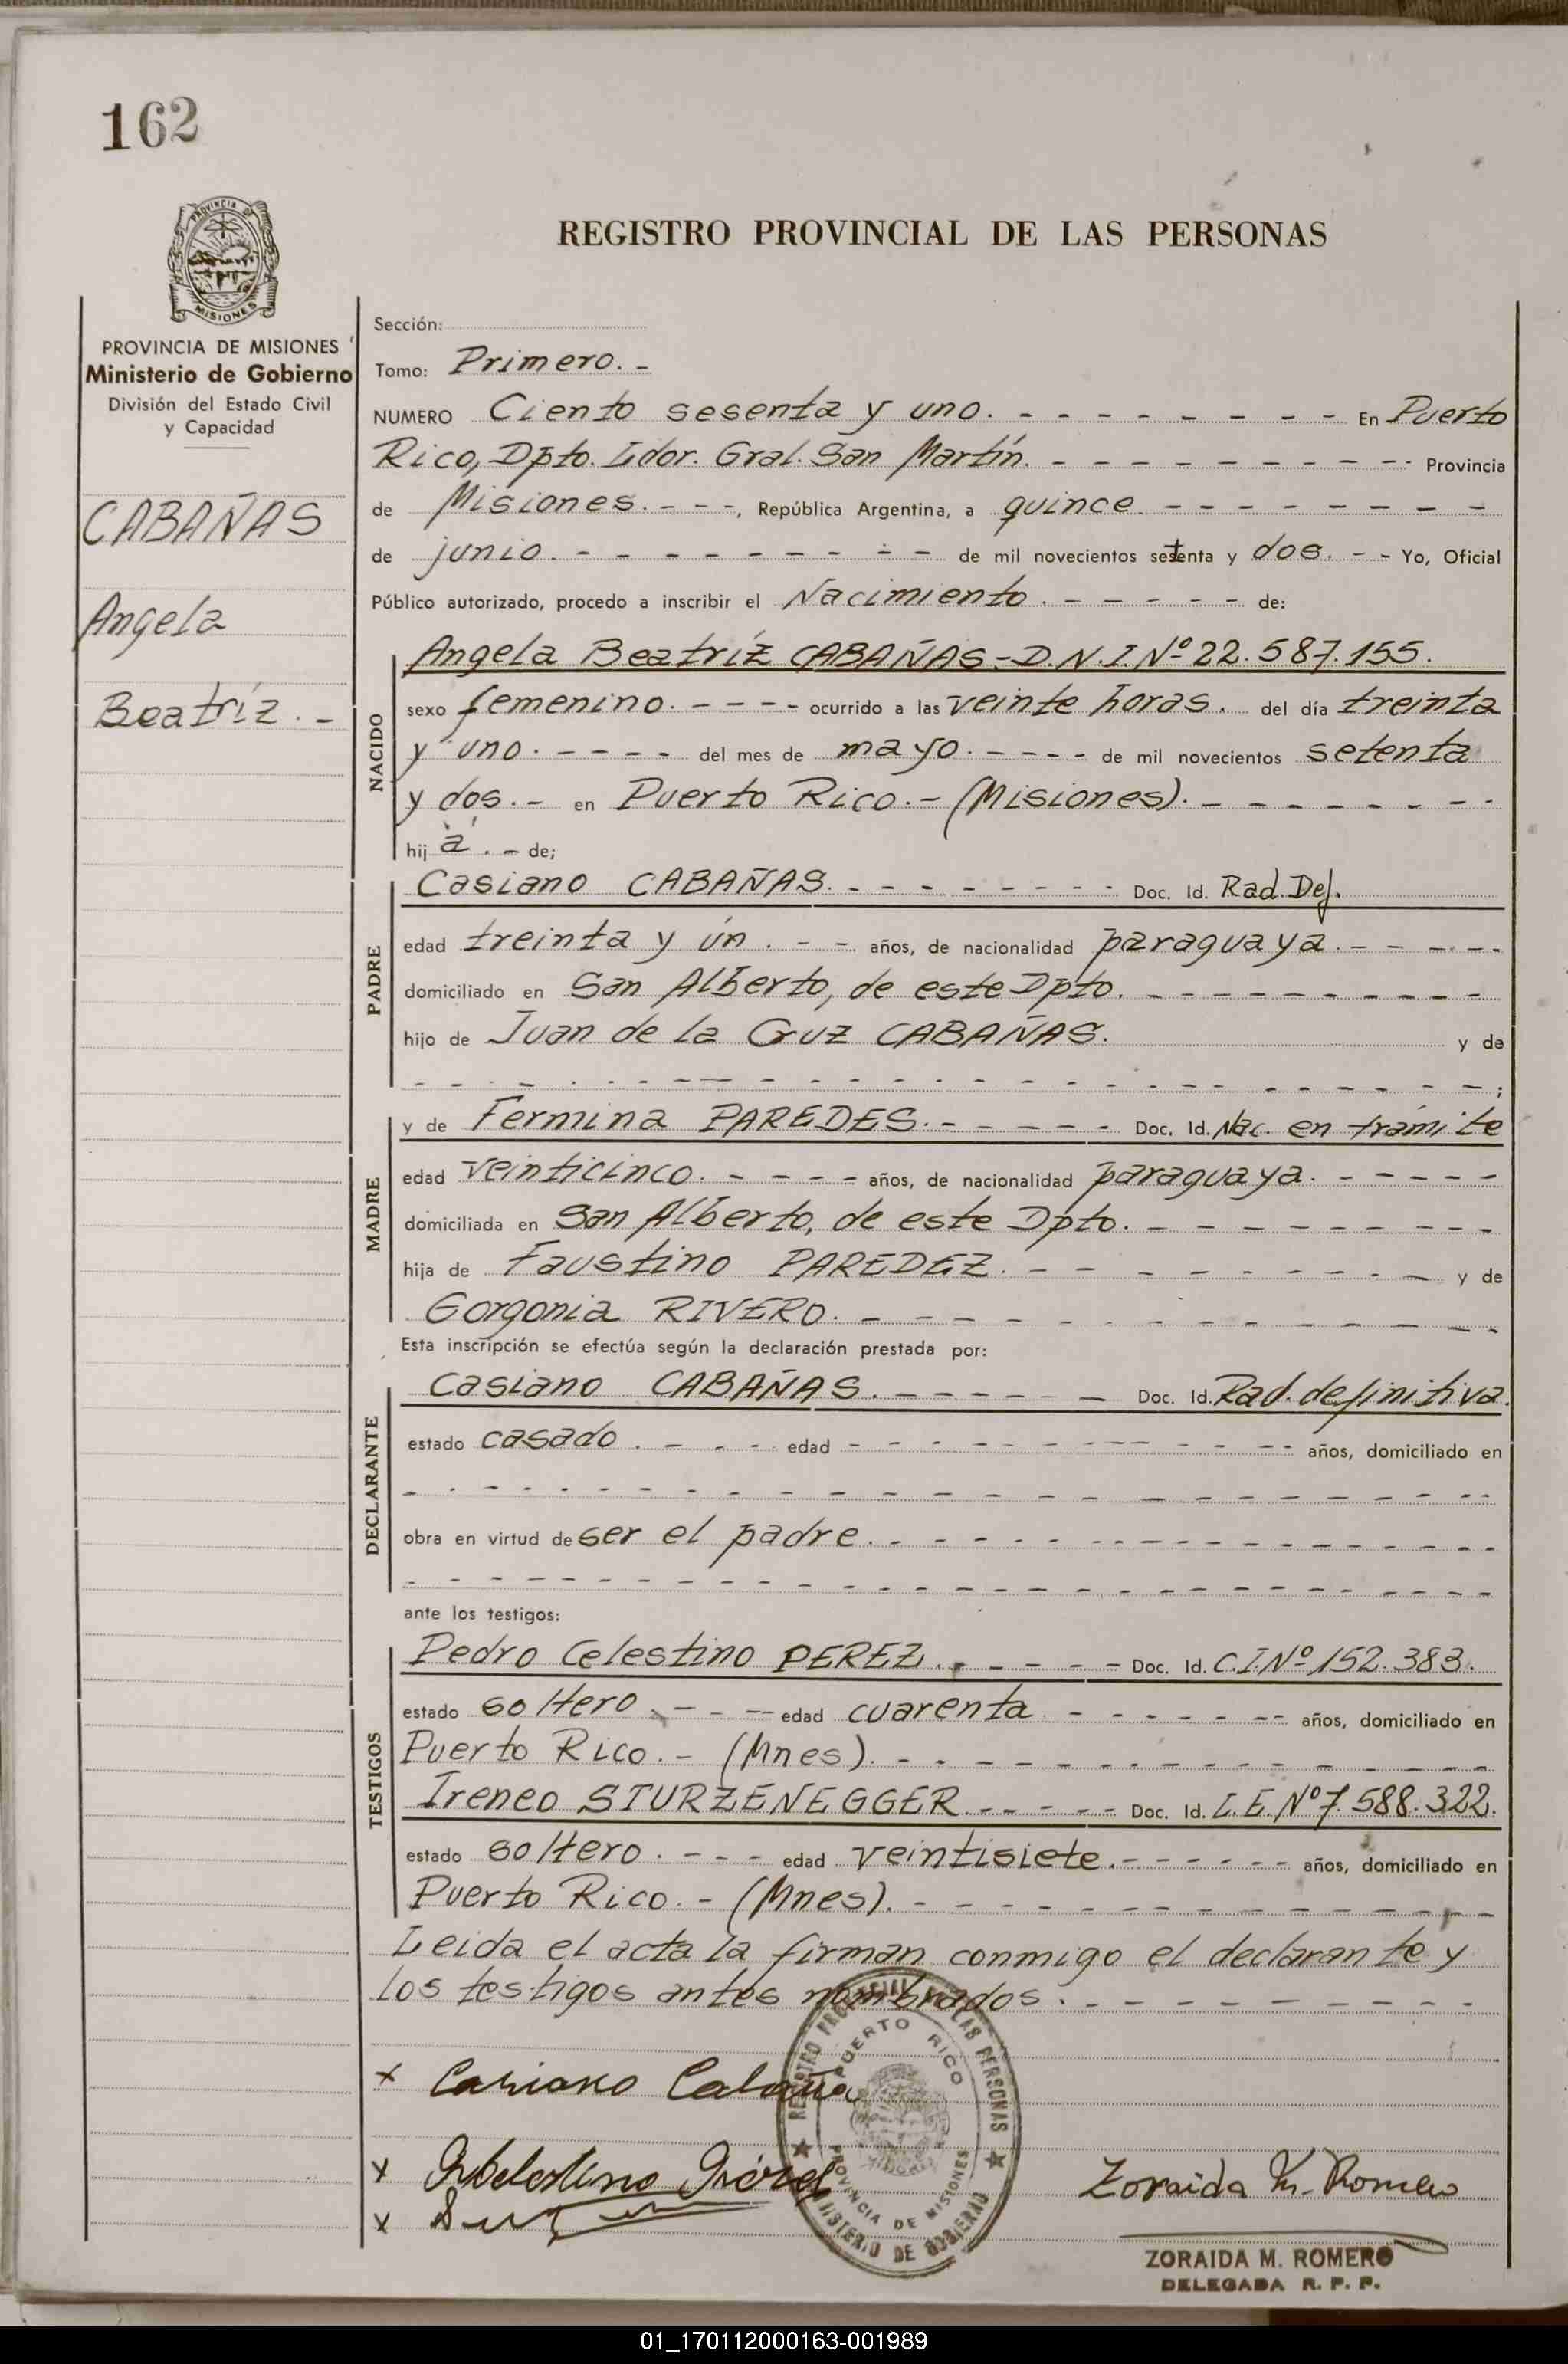 162
PROVINCIA DE
MISIONES
REGISTRO PROVINCIAL DE LAS PERSONAS
PROVINCIA DE MISIONES
Ministerio de Gobierno
División del Estado Civil
y Capacidad
CABAÑAS
Angela
Beatríz.-
Sección:
Tomo: Primero.-
NUMERO Ciento sesenta y uno. - - - - - - - - En Puerto
Rico, Dpto. Ldor. Gral. San Martín. - - - - - - - - - Provincia
de Misiones. - - -, República Argentina, a quince. - - - - - - - -
de junio. - - - - - - - - - de mil novecientos setenta y dos. - - Yo, Oficial
Público autorizado, procedo a inscribir el Nacimiento. - - - - - de:
NACIDO
Angela Beatríz CABAÑAS.-D.N.I.Nº 22.587.155.
sexo femenino. - - - - ocurrido a las veinte horas. del día treinta
y uno. - - - - del mes de mayo. - - - - de mil novecientos setenta
y dos.- en Puerto Rico.- (Misiones). - - - - - - - -
hij a.- de;
PADRE
Casiano CABAÑAS. - - - - - - - - Doc. Id. Rad. Def.
edad treinta y ún. - - años, de nacionalidad paraguaya. - - - - -
domiciliado en San Alberto, de este Dpto. - - - - - - - - -
hijo de Juan de la Cruz CABAÑAS. y de
- - - - - - - - - - - - - - - - - - - - - - ;
MADRE
y de Fermina PAREDES. - - - - - Doc. Id. Nac. en trámite
edad veinticinco. - - - - años, de nacionalidad paraguaya. - - - - -
domiciliada en San Alberto, de este Dpto. - - - - - - - - -
hija de Faustino PAREDEZ. - - - - - - - - - - y de
Gorgonia RIVERO. - - - - - - - - - - - - -
Esta inscripción se efectúa según la declaración prestada por:
DECLARANTE
Casiano CABAÑAS. - - - - - - Doc. Id. Rad. definitiva.
estado casado. - - - - edad - - - - - - - - - - - - años, domiciliado en
- - - - - - - - - - - - - - - - - - - - - - - -
obra en virtud de ser el padre. - - - - - - - - - - - - - -
- - - - - - - - - - - - - - - - - - - - - - - -
ante los testigos:
TESTIGOS
Pedro Celestino PEREZ. - - - - - Doc. Id. C.I.Nº 152.383.
estado soltero. - - - edad cuarenta - - - - - - años, domiciliado en
Puerto Rico.- (Mnes). - - - - - - - - - - - - -
Ireneo STURZENEGGER. - - - - Doc. Id. L.E.Nº 7.588.322.
estado soltero. - - - edad veintisiete. - - - - - - años, domiciliado en
Puerto Rico.- (Mnes). - - - - - - - - - - - - -
Leida el acta la firman conmigo el declarante y
los testigos antes nombrados. - - - - - - - - -
REGISTRO PROVINCIAL DE LAS PERSONAS
PUERTO RICO
PROVINCIA DE MISIONES
MINISTERIO DE GOBIERNO
x Casiano Cabaña
x
x
Zoraida M. Romero
ZORAIDA M. ROMERO
DELEGADA R. P. P.
01_170112000163-001989